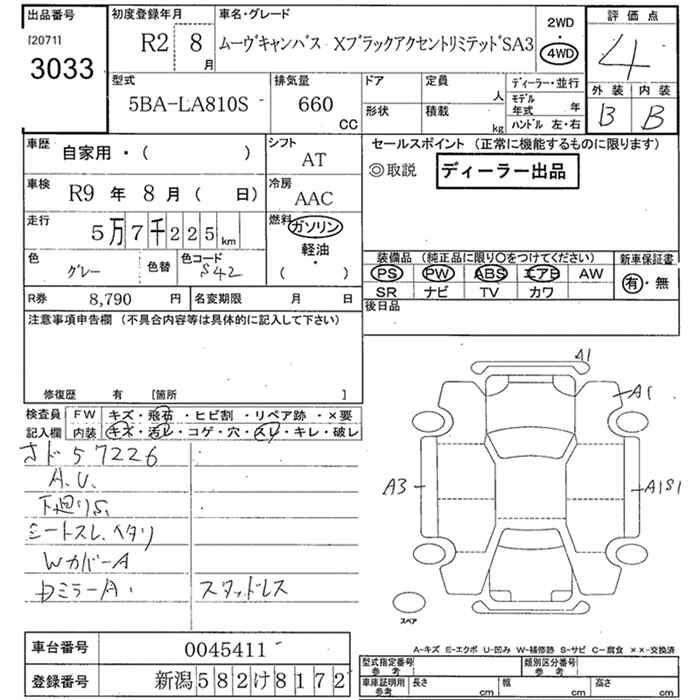 出品番号
[2071]
3033
初度登録年月
R2 8月
車名・グレード
ムーヴキャンバス XブラックアクセントリミテッドSA3
2WD
・
4WD
評価点
4
外装 内装
B B
型式
5BA-LA810S
排気量
660
CC
ドア
形状
定員
人
積載
kg
ディーラー・並行
モデル年式 年
ハンドル 左・右
車歴
自家用・( )
シフト
AT
車検
R9 年 8 月 ( 日)
冷房
AAC
走行
5万7千225km
燃料
ガソリン
軽油・
( )
色
グレー
色替
色コード
S42
R券 8,790 円
名変期限 月 日
セールスポイント (正常に機能するものに限ります)
◎取説 ディーラー出品
装備品 (純正品に限り○をつけてください)
PS PW ABS エアB AW
SR ナビ TV カワ
新車保証書
有・無
後日品
注意事項申告欄 (不具合内容等は具体的に記入して下さい)
修復歴 有 [箇所 ]
検査員記入欄
FW キズ・飛石・ヒビ割・リペア跡・×要
内装 キズ・汚レ・コゲ・穴・スレ・キレ・破レ
オド57226
A.U.
下廻りS
シートスレ、ヘタリ
Wカバー A
ミラーA
スタッドレス
A1
A1
A3
A1S1
スペア
A-キズ E-エクボ U-凹み W-補修跡 S-サビ C-腐食 ××-交換済
車台番号 0045411
登録番号 新潟582け8172
型式指定番号
参考
類別区分番号
参考
車庫証明用
参考
長さ cm
幅 cm
高さ cm